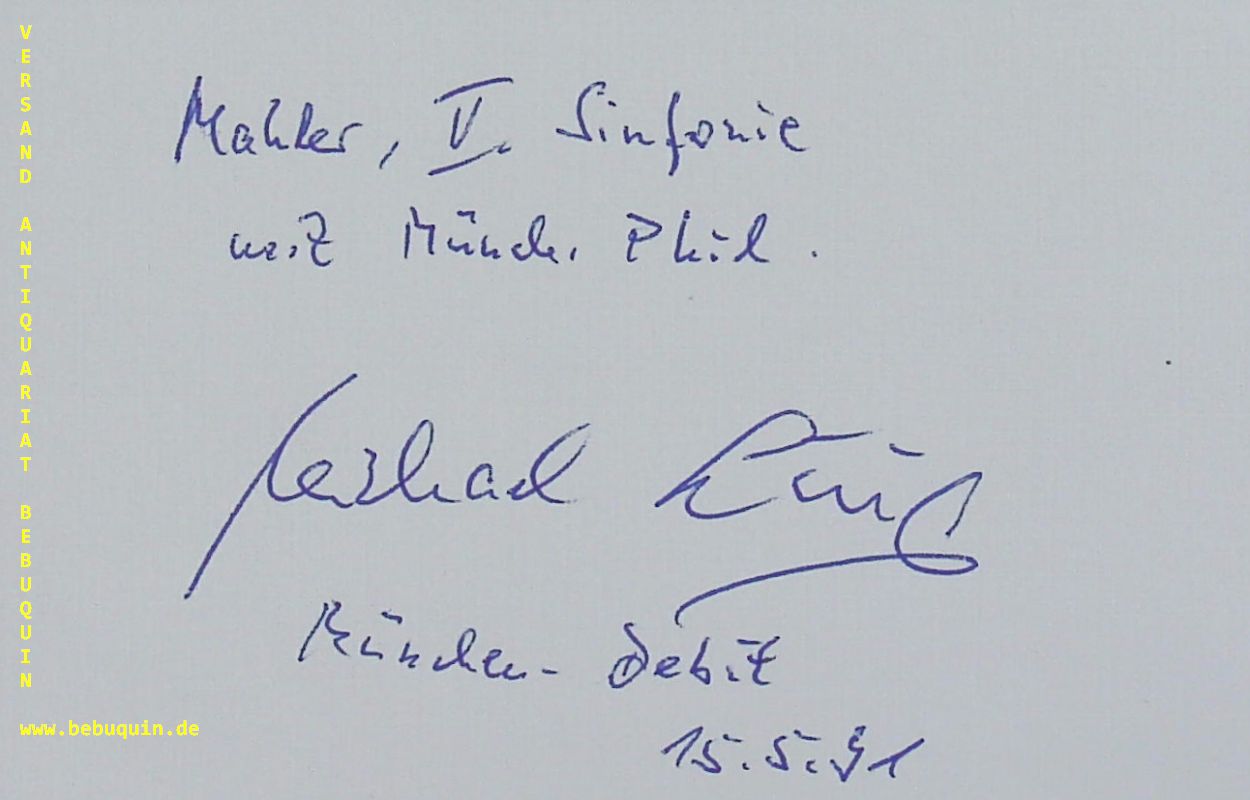 VERSAND ANTIQUARIAT BEBUQUIN
www.bebuquin.de
Mahler, V. Sinfonie
mit Münch. Phil.
Michael
München-Debüt
15.5.91